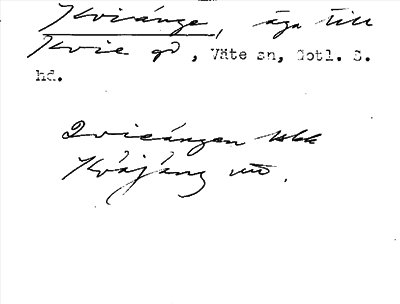 Kviänge, äga till
Kvie gd, Väte sn, Gotl. S.
hd.
Qvieängen
Kväjäng